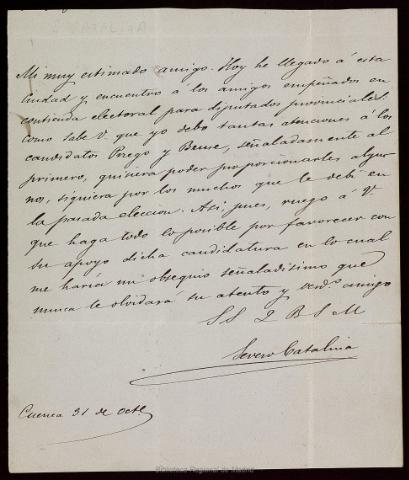 Mi muy estimado amigo. Hoy he llegado á esta
Ciudad y encuentro á los amigos empeñados en
contienda electoral para diputados provinciales.
Como sabe V. que yo debo tantas atenciones á los
candidatos Perego y señaladamente al
primero, quisiera poder proporcionarles algu
nos, siquiera por los muchos que le debí en
la pasada eleccion. Asi, pues, ruego á V.
que haga todo lo posible por favorecer con
su apoyo dicha candidatura en lo cual
me haria un obsequio señaladisimo que
nunca le olvidará su atento y verdo. amigo
S S Q B S M
Severo Catalina
Cuenca 31 de Octe.
Biblioteca Regional de Madrid